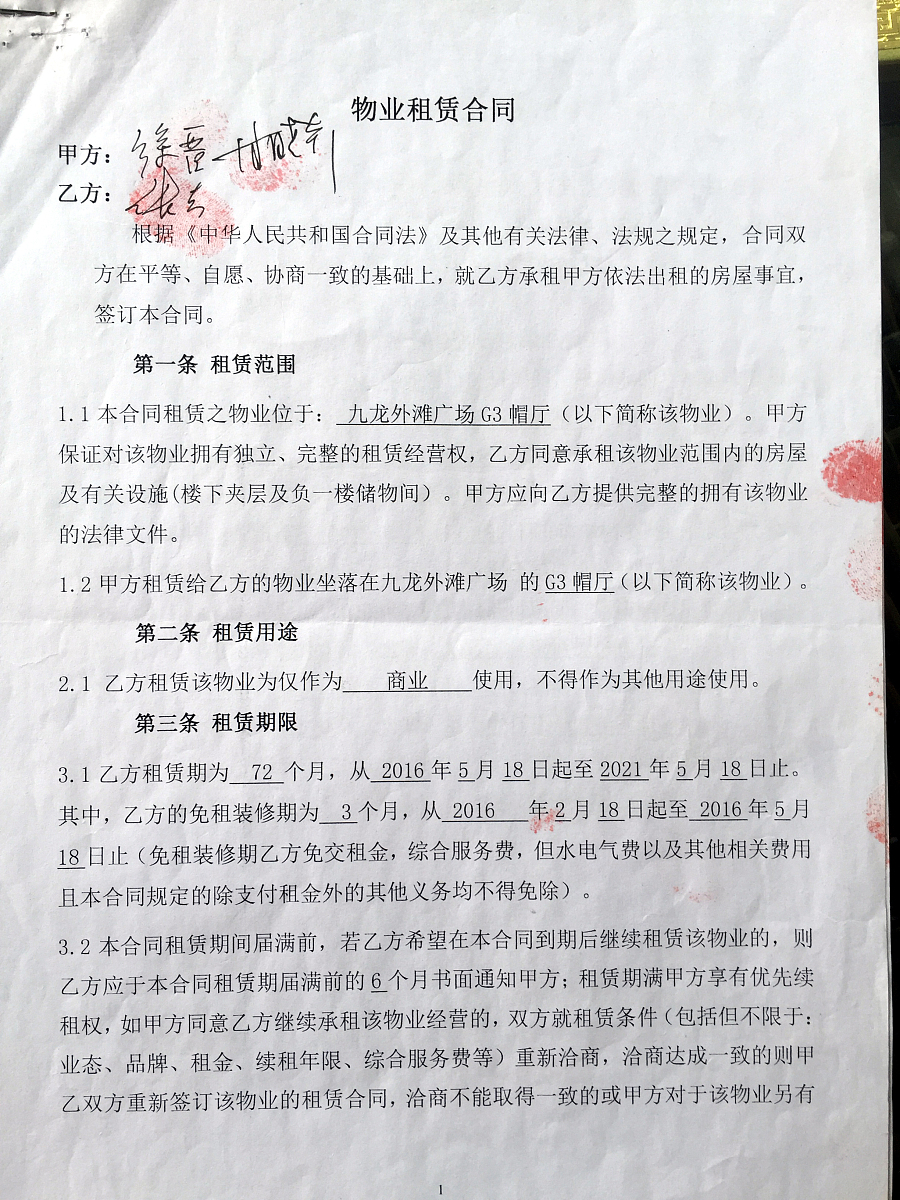 物业租赁合同
甲方：徐晋
乙方：
根据《中华人民共和国合同法》及其他有关法律、法规之规定，合同双
方在平等、自愿、协商一致的基础上，就乙方承租甲方依法出租的房屋事宜，
签订本合同。
第一条 租赁范围
1.1 本合同租赁之物业位于： 九龙外滩广场 G3 帽厅（以下简称该物业）。甲方
保证对该物业拥有独立、完整的租赁经营权，乙方同意承租该物业范围内的房屋
及有关设施(楼下夹层及负一楼储物间）。甲方应向乙方提供完整的拥有该物业
的法律文件。
1.2 甲方租赁给乙方的物业坐落在九龙外滩广场 的 G3 帽厅（以下简称该物业）。
第二条 租赁用途
2.1 乙方租赁该物业为仅作为 商业 使用，不得作为其他用途使用。
第三条 租赁期限
3.1 乙方租赁期为 72 个月，从 2016 年 5 月 18 日起至 2021 年 5 月 18 日止。
其中，乙方的免租装修期为 3 个月，从 2016 年 2 月 18 日起至 2016 年 5 月
18 日止（免租装修期乙方免交租金，综合服务费，但水电气费以及其他相关费用
且本合同规定的除支付租金外的其他义务均不得免除）。
3.2 本合同租赁期间届满前，若乙方希望在本合同到期后继续租赁该物业的，则
乙方应于本合同租赁期届满前的 6 个月书面通知甲方；租赁期满甲方享有优先续
租权，如甲方同意乙方继续承租该物业经营的，双方就租赁条件（包括但不限于：
业态、品牌、租金、续租年限、综合服务费等）重新洽商，洽商达成一致的则甲
乙双方重新签订该物业的租赁合同，洽商不能取得一致的或甲方对于该物业另有
1